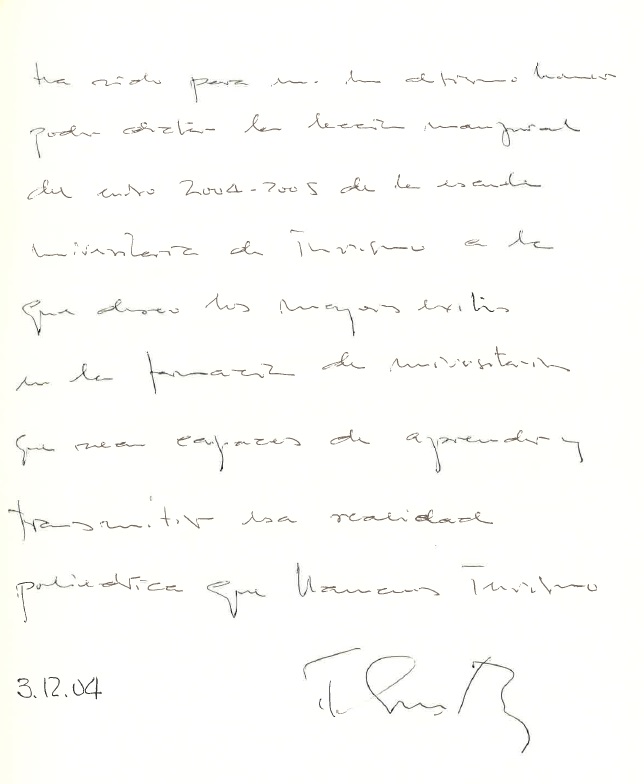 Ha sido para mi un altísimo honor
poder dictar la lección inaugural
del curso 2004-2005 de la escuela
universitaria de Turismo a la
que deseo los mayores exitos
en la formación de universitarios
que sean capaces de aprender y
transmitir esa realidad
poliedrica que llamamos Turismo
3.12.04